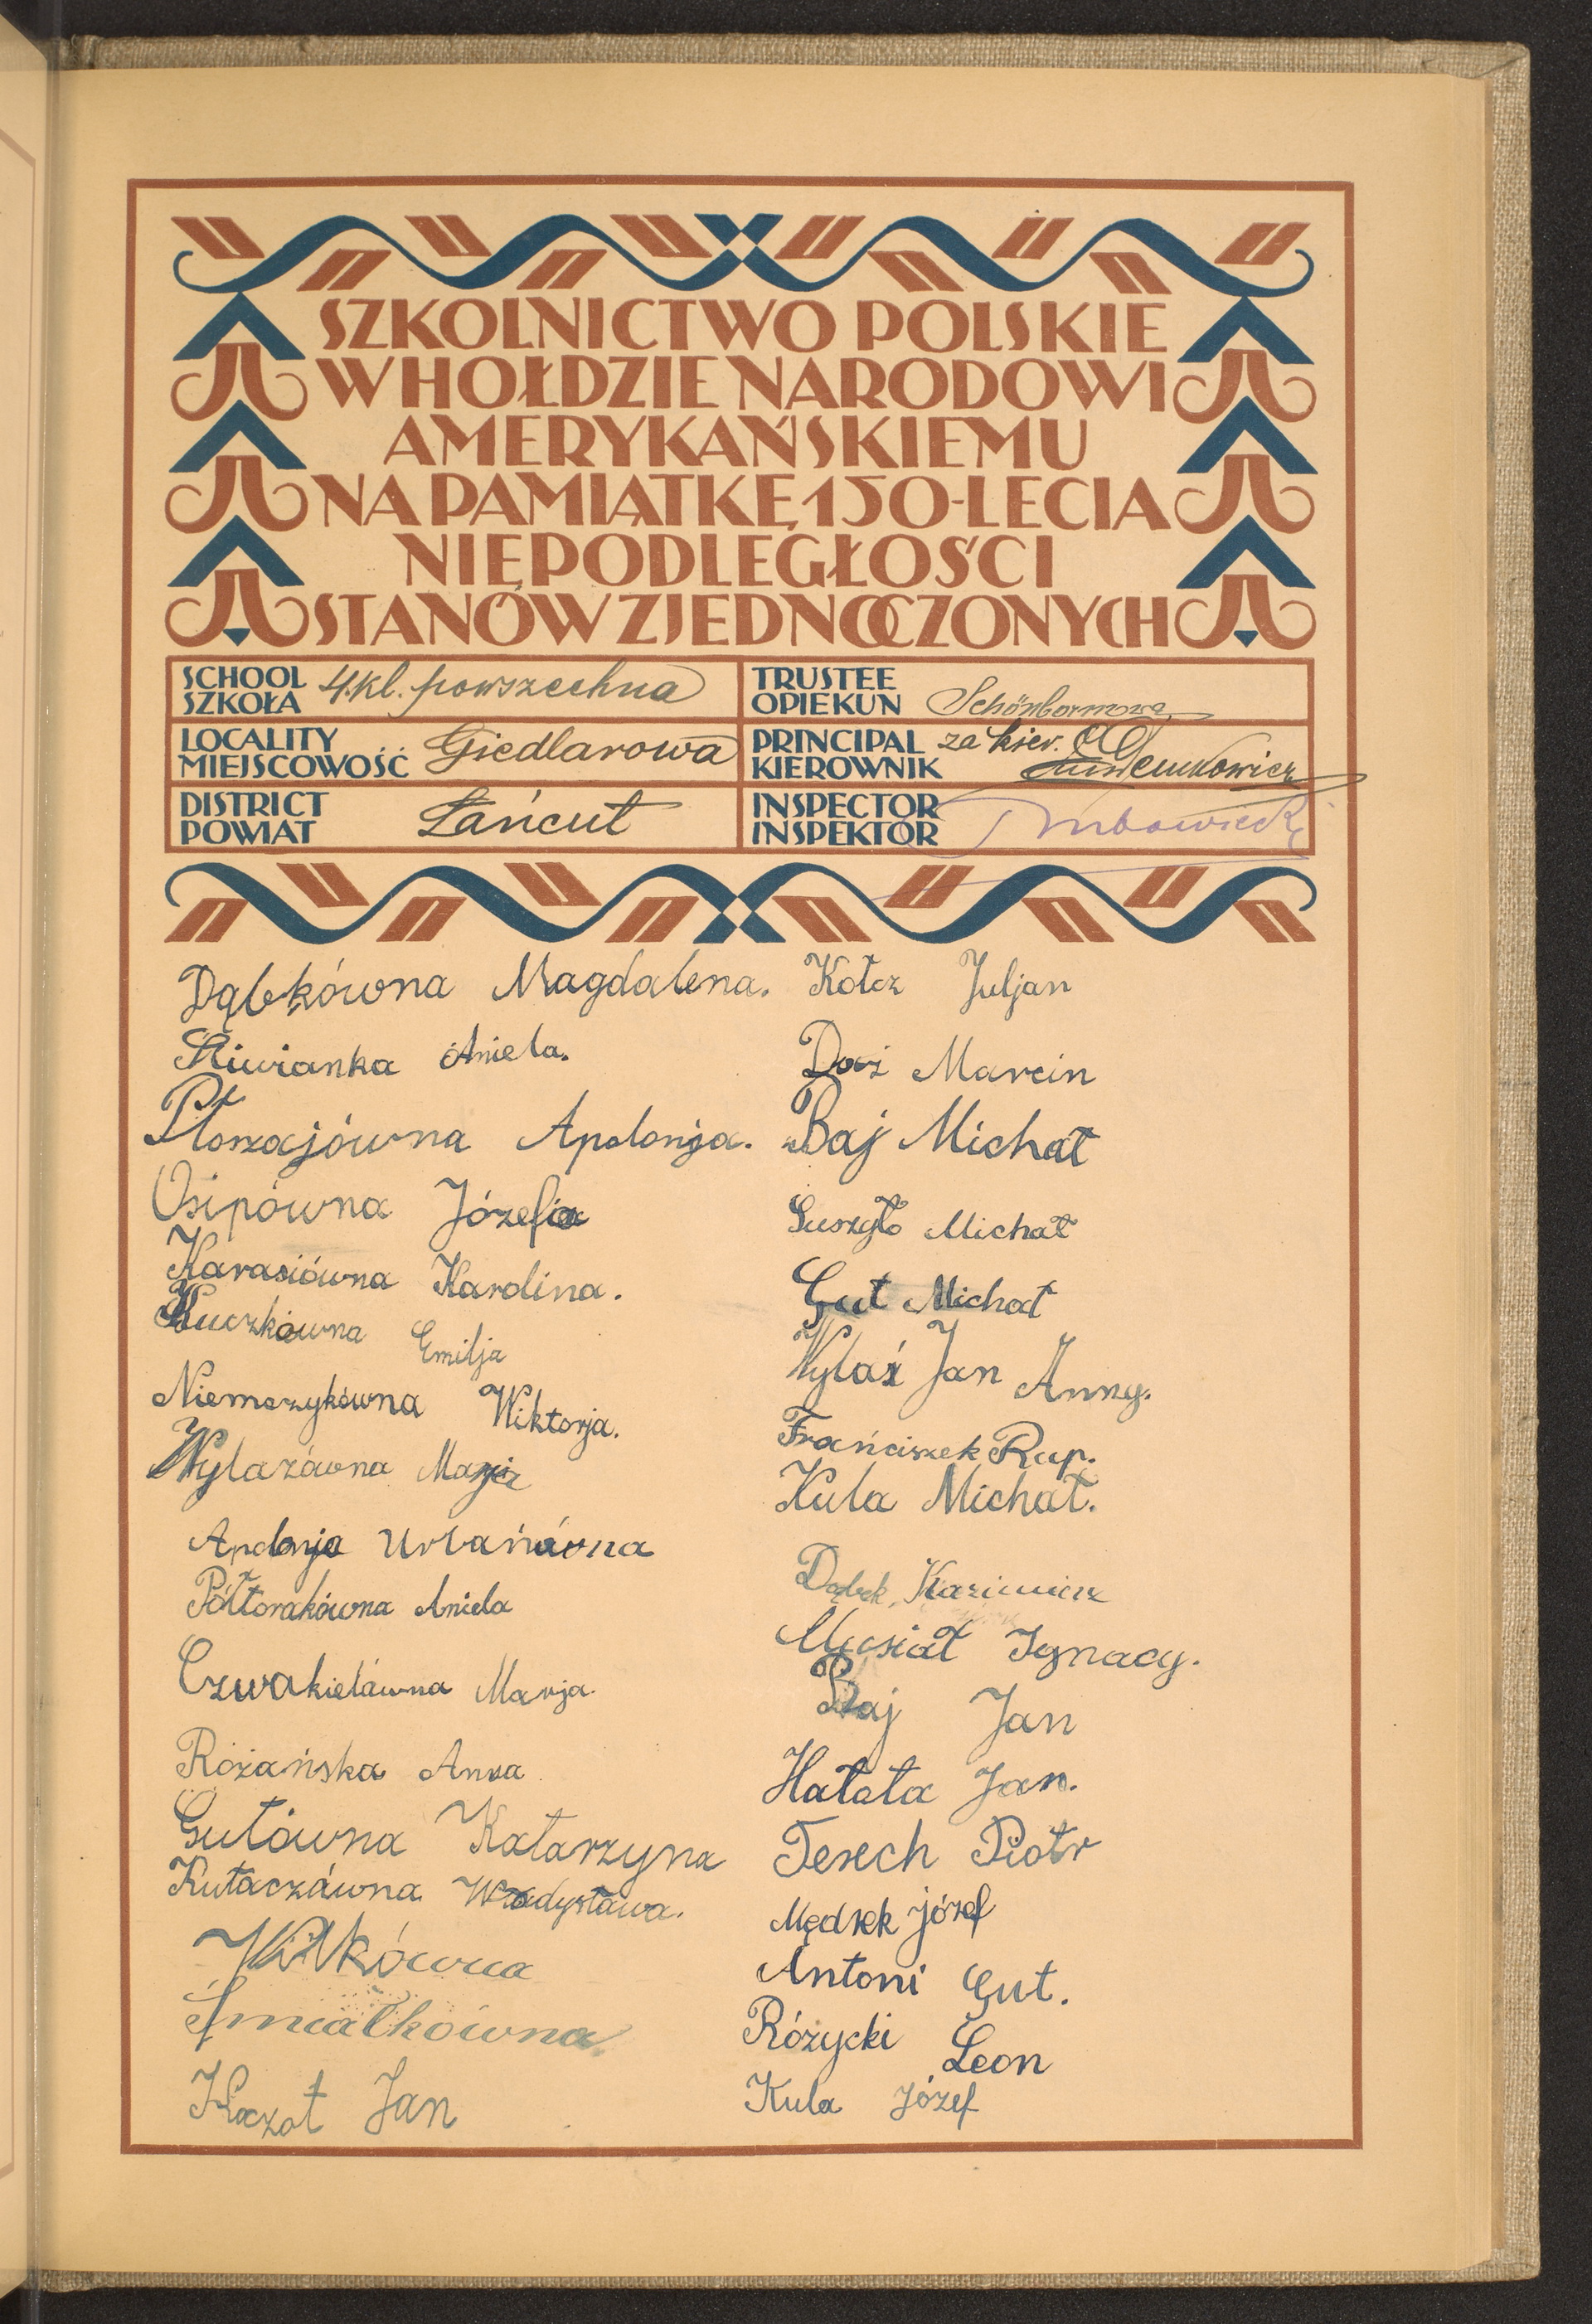 SZKOLNICTWO POLSKIE
W HOŁDZIE NARODOWI
AMERYKAŃSKIEMU
NA PAMIĄTKĘ 150-LECIA
NIEPODLEGŁOŚCI
STANÓW ZJEDNOCZONYCH
SCHOOL
SZKOŁA 4.kl. powszechna
TRUSTEE
OPIEKUN Schönbornowa
LOCALITY
MIEJSCOWOŚĆ Giedlarowa
PRINCIPAL za kier.
KIEROWNIK
DISTRICT
POWIAT Łańcut
INSPECTOR
INSPEKTOR
Dąbkówna Magdalena.
Śliwianka Aniela.
Płoszajówna Apolonja.
Osipówna Józefa
Karasiówna Karolina.
Kuczkówna Emilja
Niemczykówna Wiktorja.
Wylazówna Marja
Apolonja Urbańówna
Półtorakówna Aniela
Czwakielówna Marja.
Różańska Anna
Gutówna Katarzyna
Kutaczówna Władysława.
Wilkówna
Śmiałkówna
Kaczot Jan
Kołcz Juljan
Marcin
Baj Michał
Suszyło Michał
Gut Michał
Wylaź Jan Anny.
Frańciszek Rup.
Kula Michał.
Dąbek Kazimierz
Musiał Ignacy.
Baj Jan
Hałata Jan.
Terech Piotr
Mędrek Józef
Antoni Gut.
Różycki Leon
Kula Józef